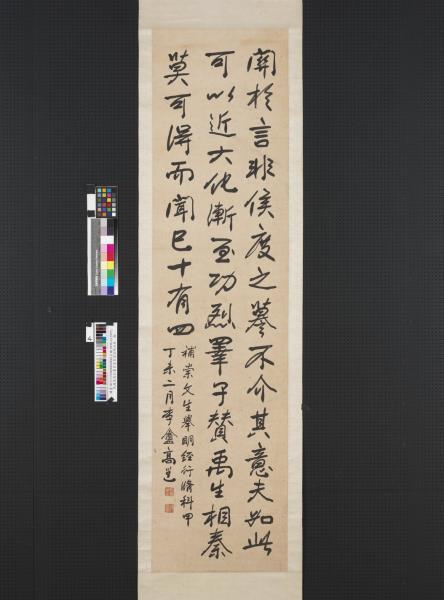 關於言非侯度之摹不介其意夫如此
可以近大化漸至功烈睪子贊禹生相秦
莫可得而聞已十有四
補崇文生舉明經行脩科甲
丁未二月李盦高邕